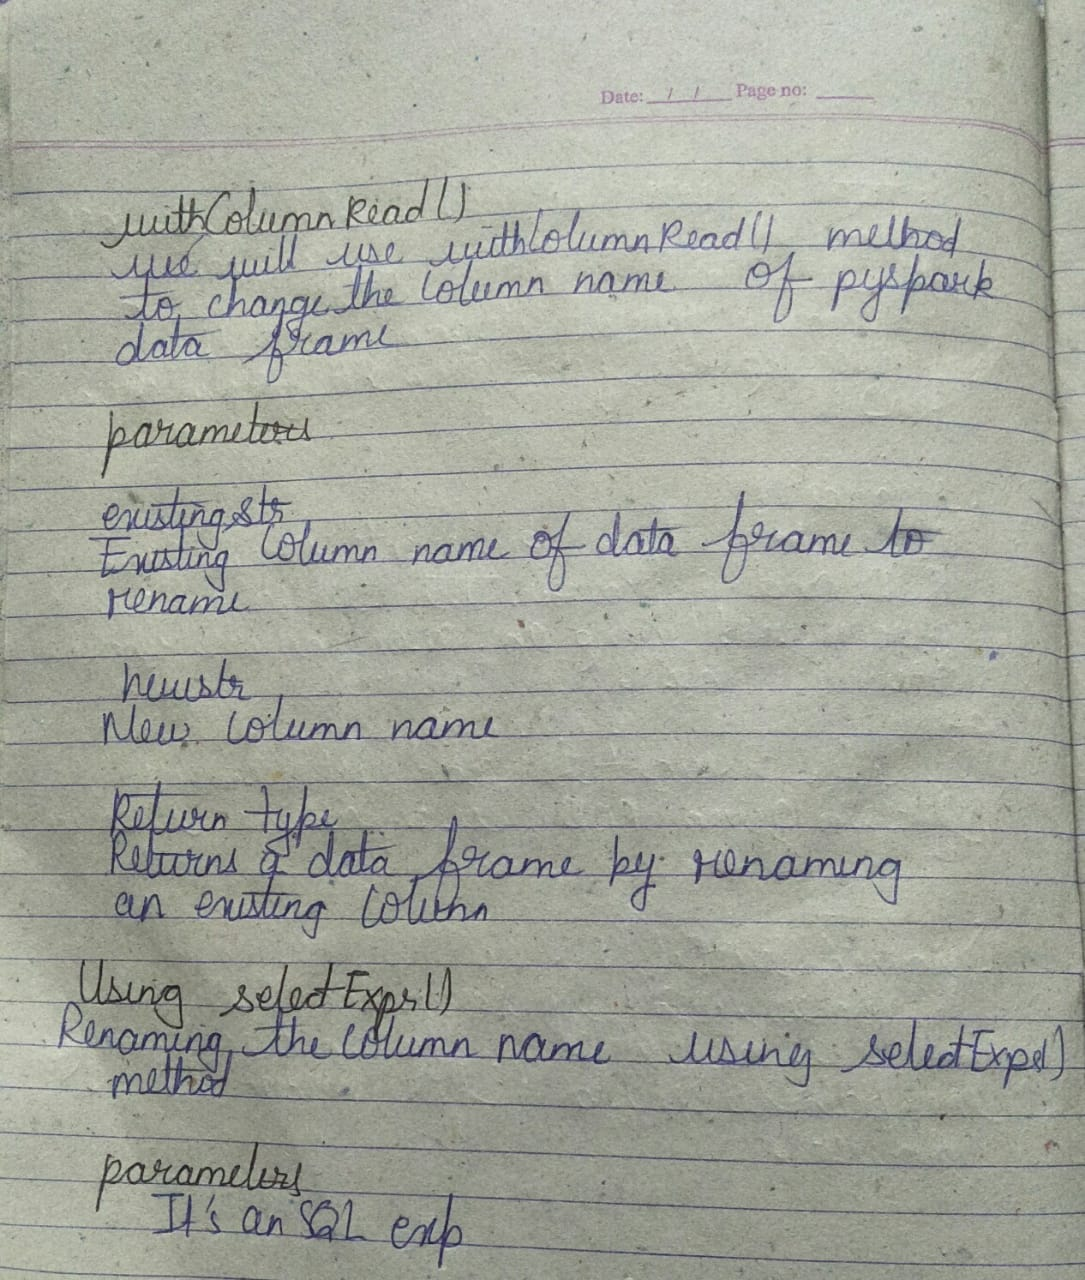 Date: __/__/____ Page no: ______
withColumnRead()
we will use withColumnRead() method
to change the Column name of pyspark
data frame
parameters
existingstr
Existing Column name of data frame to
rename
newstr
New Column name
Return type
Returns a data frame by renaming
an existing Column
Using selectExpr()
Renaming the Column name using selectExpr()
method
parameters
It's an SQL exp